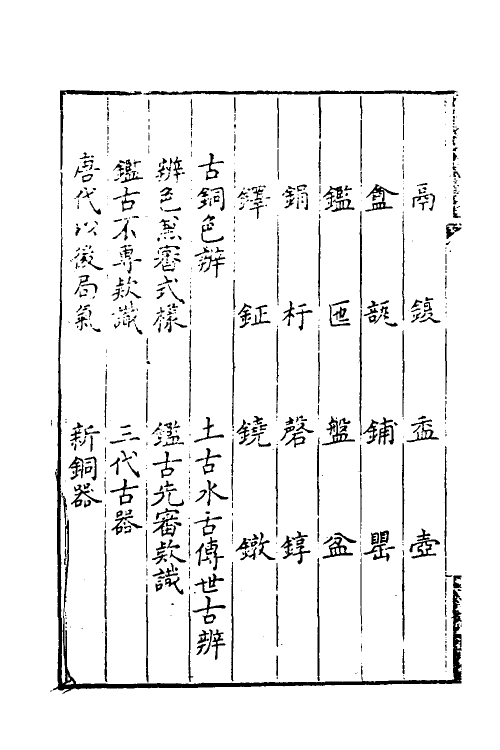 鬲　鍑　盉　壺
盦　瓿　鋪　罍
鑑　匜　盤　盆
鋗　杅　磬　錞
鐸　鉦　鐃　鐓
古銅色辨　土古水古傳世古辨
辨色兼審式樣　鑑古先審欵識
鑑古不專欵識　三代古器
唐代以後局氣　新銅器